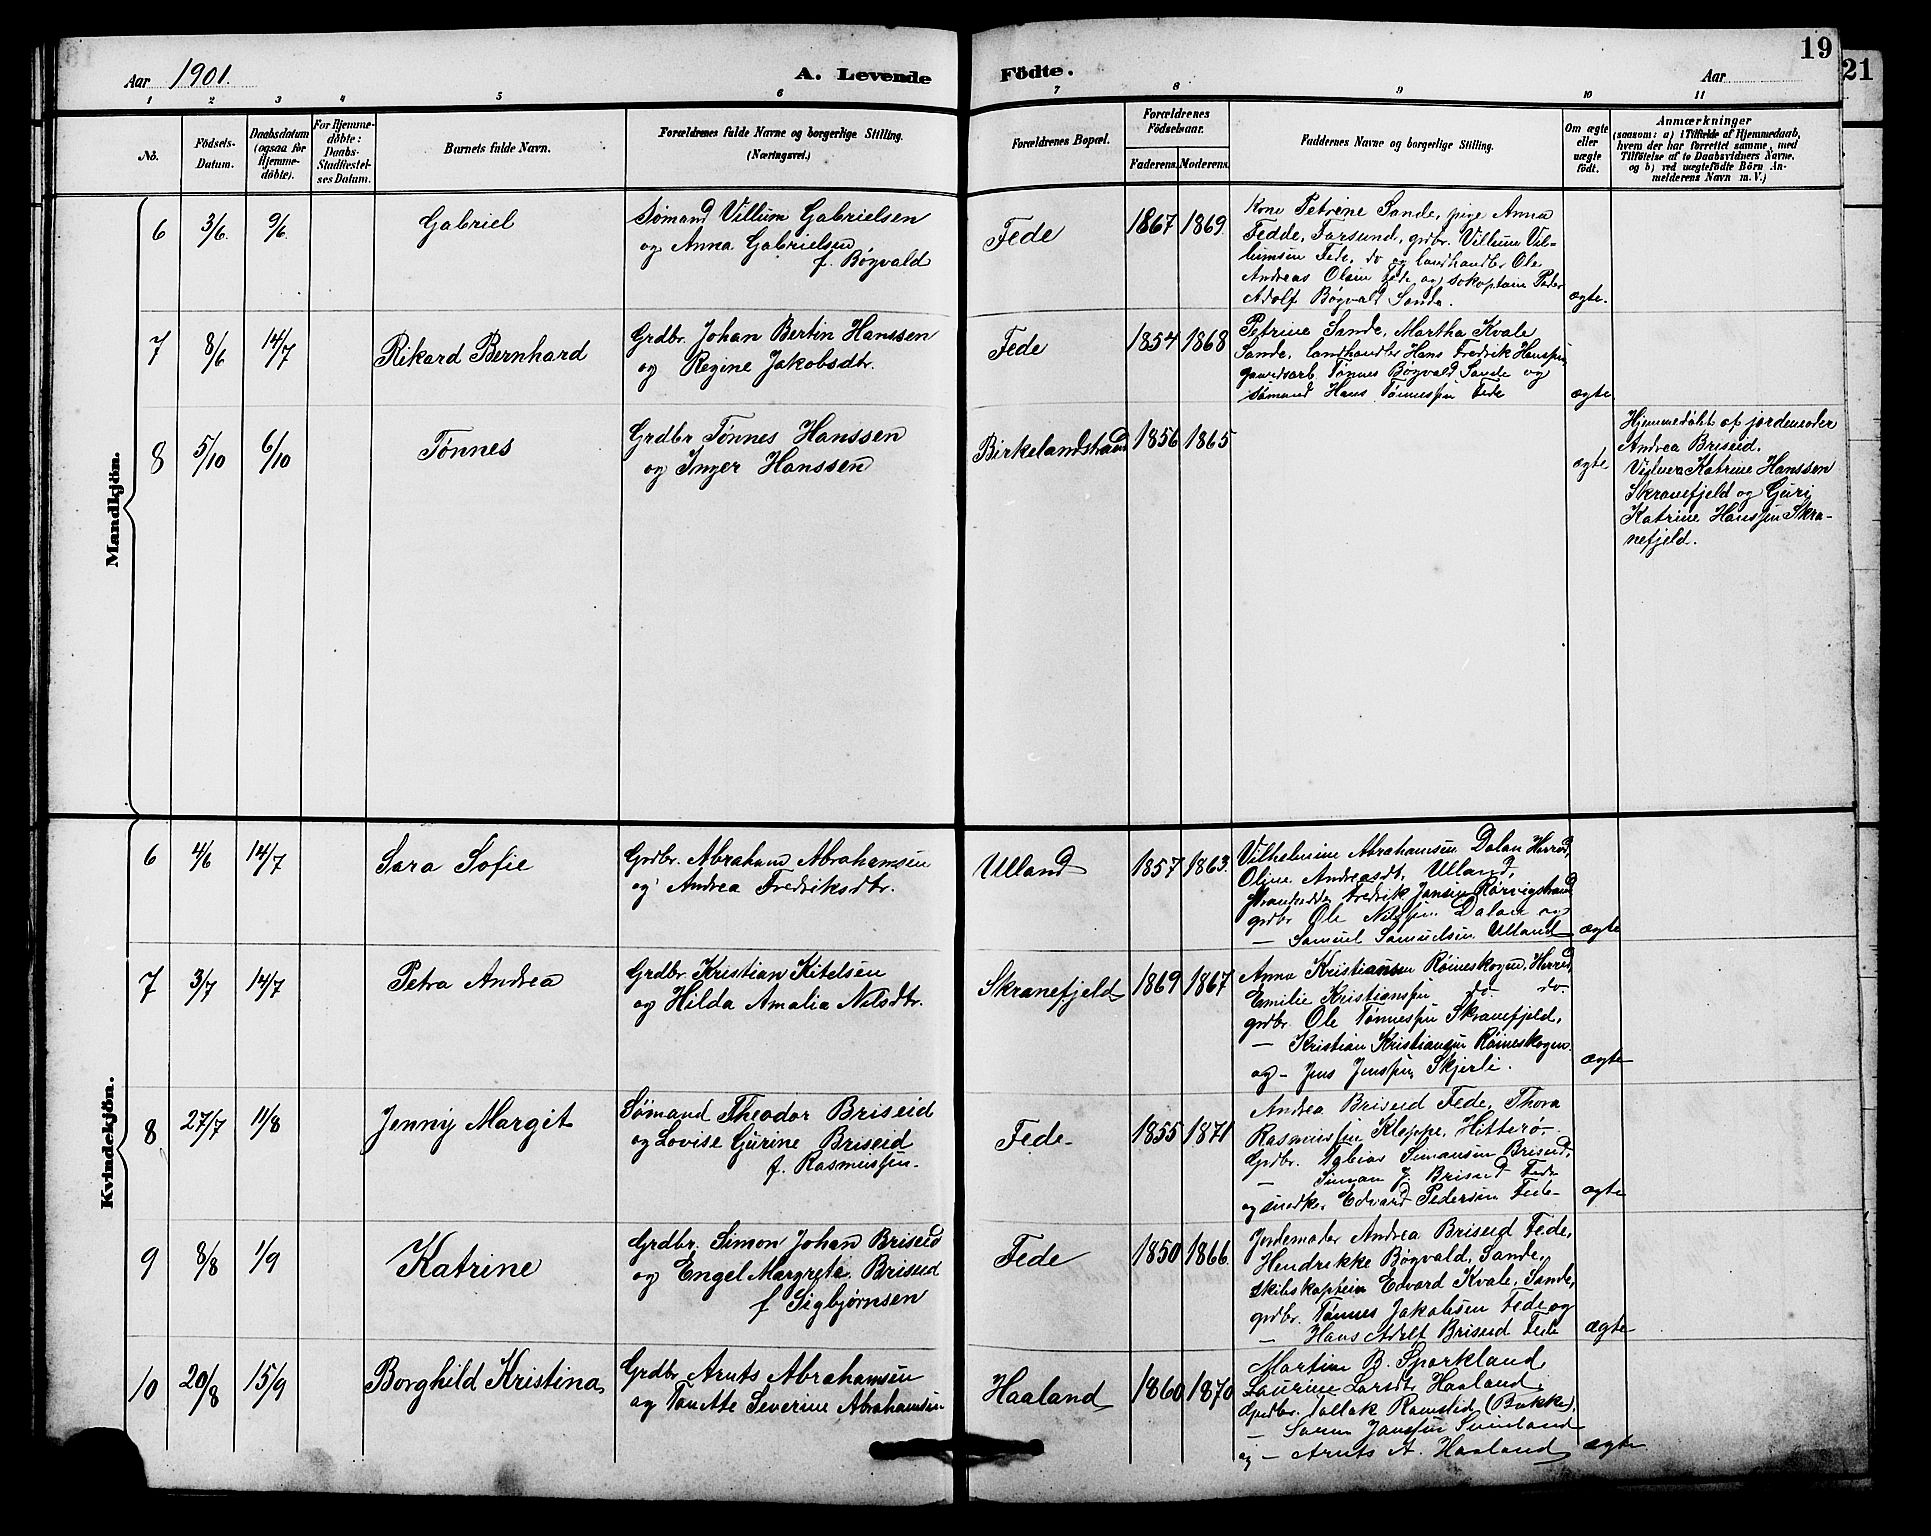 Aar 1901.
A. Levende Födte.
Aar
19
21
1 2 3 4 5 6 7 8 9 10 11
No.
Födsels-
Datum.
Daabsdatum
(ogsaa for
Hjemme-
döbte).
For Hjemme-
döbte:
Daabs-
Stadfæstel-
ses Datum.
Barnets fulde Navn.
Forældrenes fulde Navne og borgerlige Stilling.
(Næringsvei.)
Forældrenes Bopæl.
Forældrenes
Födselsaar.
Faderens. Moderens.
Faddernes Navne og borgerlige Stilling.
Om ægte
eller
uægte
født.
Anmærkninger
(saasom: a) i Tilfælde af Hjemmedaab,
hvem der har forrettet samme, med
Tilföielse af to Daabsvidners Navne,
og b) ved uægtefödte Börn An-
melderens Navn m. V.)
Mandkjön.
6 3/6. 9/6. Gabriel
Sømand Villum Gabrielsen
og Anna Gabrielsen
f. Bøgvald
Fede 1867 1869.
Kone Petrine Sande, pige Anna
Fedde, Farsund, grdbr. Villum Vil-
lumsen Fede, do og landhandler Ole
Andreas Olsen Fede og Peder
Adolf Bøgvald Sande.
ægte.
7 8/6 14/7 Rikard Bernhard
Grdbr. Johan Bertin Hanssen
og Regine Jakobsdtr.
Fede 1854 1868
Petrine Sande, Martha Kvale
Sande, landhandler Hans Fredrik Hanssen,
Tønnes Bøgvald Sande og
sømand Hans Tønnessen Fede
ægte.
8 5/10 6/10 Tønnes
Grdbr Tønnes Hanssen
og Inger Hanssen
Birkelandstrand 1856 1865
ægte
Hjemmedøbt af jordemoder
Andrea Briseid.
Vidner Katrine Hanssen
Skranefjeld og Guri
Katrine Hanssen Skra-
nefjeld.
Kvindekjön.
6 4/6 14/7 Sara Sofie
Grdbr. Abraham Abrahamsen
og Andrea Fredriksdtr.
Ulland 1857 1863.
Vilhelmine Abrahamsen Dalan Herred,
Oline Andreasdt, Ulland,
Fredrik Jansen Rørvigstrand,
grdbr Ole Nilssen Dalan og
— Samuel Samuelsen Ulland
ægte
7 3/7 14/7 Petra Andrea
Grdbr. Kristian Kitelsen
og Hilda Amalia Nilsdtr.
Skranefjeld 1869 1867
Anna Kristiansen Røineskogen, Herred,
Emilie Kristianssen do. do.
grdbr. Ole Tønnessen Skranefjeld,
— Kristian Kristiansen Røineskogen
og — Jens Jenssen Skjerli.
ægte
8 27/7 11/8 Jenny Margit
Sømand Theodor Briseid
og Lovise Gurine Briseid
f. Rasmussen.
Fede 1855 1871
Andrea Briseid Fede, Thora
Rasmussen Kloppe, Hitterø.
Grdbr. Tobias Simonsen Briseid,
— Simon J. Briseid Fede
og snedk. Edvard Pedersen Fede
ægte
9 8/8 1/9 Katrine
Grdbr. Simon Johan Briseid
og Engel Margrete Briseid
f Sigbjørnsen
Fede 1850 1866.
Jordemoder Andrea Briseid Fede,
Hendrikke Bøgvald, Sande,
skibskaptein Edvard Kvale, Sande,
grdbr. Tønnes Jakobsen Fede og
— Hans Adolf Briseid Fede
ægte
10 20/8 15/9 Borghild Kristina
Grdbr Arnts Abrahamsen
og Tonette Severine Abrahamsen
Haaland 1860 1870
Martine B. Sporkland,
Laurine Larsdtr Haaland,
Grdbr. Tollak Ramstad (Bakke)
— Søren Janssen
og — Arnts A. Haaland
ægte